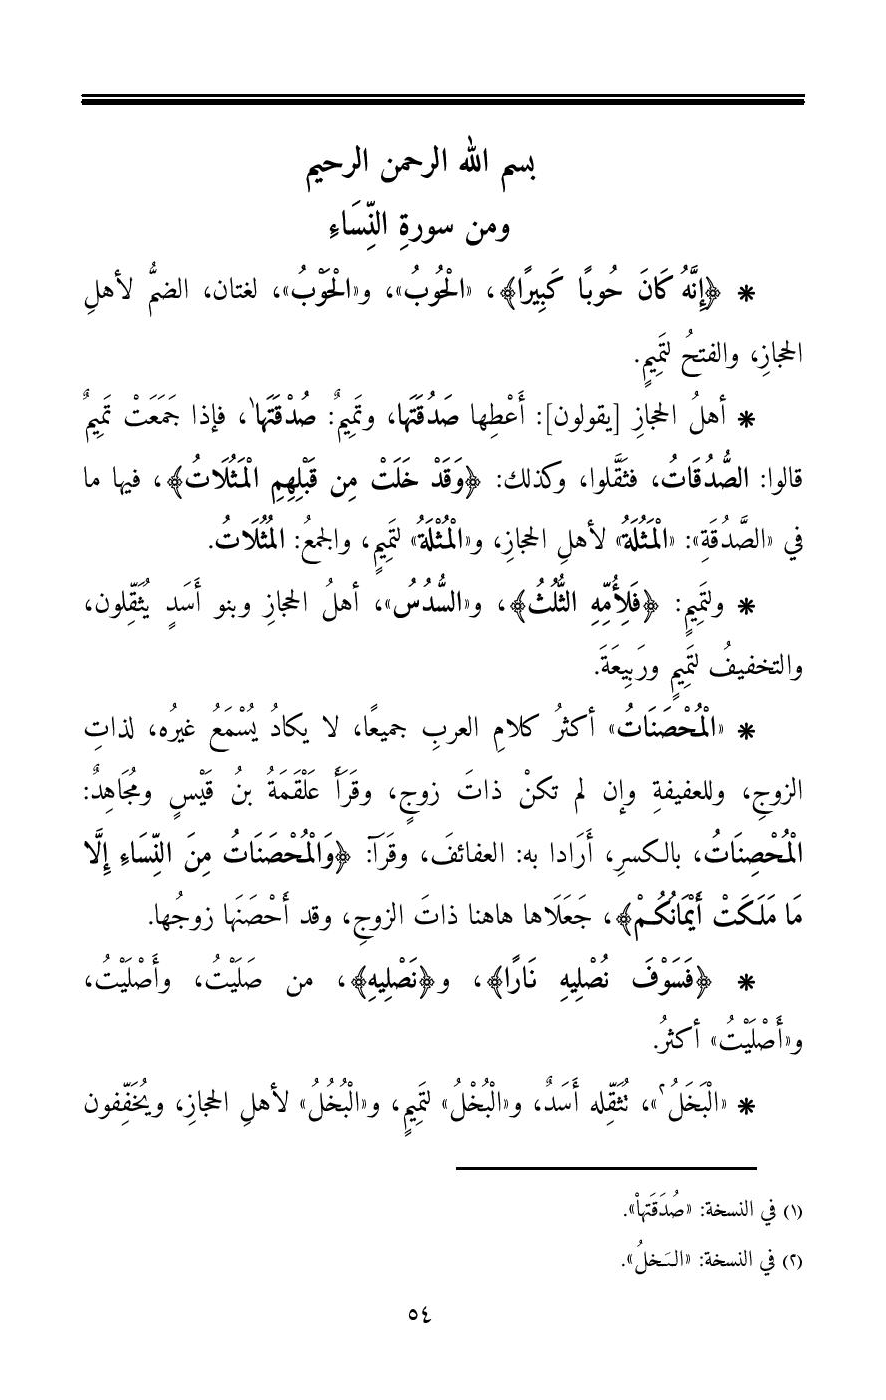 بسم الله الرحمن الرحيم
ومن سورةِ النِّسَاءِ
* ﴿إِنَّهُ كَانَ حُوبًا كَبِيرًا﴾، «الْحُوبُ»، و«الْحَوْبُ»، لغتان، الضمُّ لأهلِ
الحجازِ، والفتحُ لتَمِيمٍ.
* أهلُ الحجازِ [يقولون]: أَعْطِها صَدُقَتَها، وتَمِيمٌ: صُدْقَتَها١، فإذا جَمَعَتْ تَمِيمٌ
قالوا: الصُّدُقَاتُ، فثَقَّلوا، وكذلك: ﴿وَقَدْ خَلَتْ مِن قَبْلِهِمِ الْمَثُلَاتُ﴾، فيها ما
في «الصَّدُقَةِ»: «الْمَثُلَةُ» لأهلِ الحجازِ، و«الْمُثْلَةُ» لتَمِيمٍ، والجمعُ: المُثُلَاتُ.
* ولتَمِيمٍ: ﴿فَلِأُمِّهِ الثُّلُثُ﴾، و«السُّدُسُ»، أهلُ الحجازِ وبنو أَسَدٍ يُثَقِّلون،
والتخفيفُ لتَمِيمٍ ورَبِيعَةَ.
* «الْمُحْصَنَاتُ» أكثرُ كلامِ العربِ جميعًا، لا يكادُ يُسْمَعُ غيرُه، لذاتِ
الزوجِ، وللعفيفةِ وإن لم تكنْ ذاتَ زوجٍ، وقَرَأَ عَلْقَمَةُ بنُ قَيْسٍ ومُجَاهِدٌ:
الْمُحْصِنَاتُ، بالكسرِ، أَرَادا به: العفائفَ، وقَرَآ: ﴿وَالْمُحْصَنَاتُ مِنَ النِّسَاءِ إِلَّا
مَا مَلَكَتْ أَيْمَانُكُمْ﴾، جَعَلَاها هاهنا ذاتَ الزوجِ، وقد أَحْصَنَها زوجُها.
* ﴿فَسَوْفَ نُصْلِيهِ نَارًا﴾، و﴿نَصْلِيهِ﴾، من صَلَيْتُ، وأَصْلَيْتُ،
و«أَصْلَيْتُ» أكثرُ.
* «الْبَخَلُ٢»، تُثَقِّله أَسَدٌ، و«الْبُخْلُ» لتَمِيمٍ، و«الْبُخُلُ» لأهلِ الحجازِ، ويُخَفِّفون
(١) في النسخة: «صُدَقَتهاْ».
(٢) في النسخة: «الـَخلُ».
٥٤